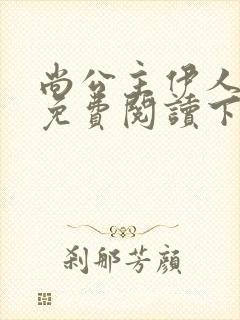 尚公主伊人
免費閱讀下
刹那芳顏